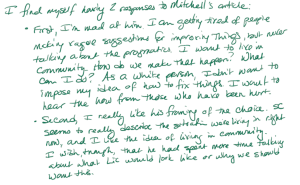 I find myself having 2 responses to Mitchell's article:
• First, I'm mad at him. I am getting tired of people
making vague suggestions for improving things, but never
talking about the pragmatics. I want to live in
community. How do we make that happen? What
can I do? As a white person, I don't want to
impose my idea of how to fix things. I want to
hear the how from those who have been hurt.
• Second, I really like his framing of the choice. SC
seems to really describe the we're living in right
now, and I like the idea of living in community.
I wish, though, that he had spent more time talking
about what would look like or why we should
want this.